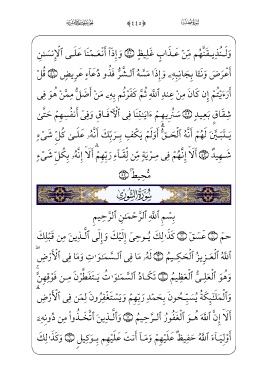 وَلَنُذِيقَنَّهُم مِّنْ عَذَابٍ غَلِيظٍ ۝ وَإِذَآ أَنْعَمْنَا عَلَى ٱلْإِنسَـٰنِ
أَعْرَضَ وَنَـَٔا بِجَانِبِهِۦ وَإِذَا مَسَّهُ ٱلشَّرُّ فَذُو دُعَآءٍ عَرِيضٍ ۝ قُلْ
أَرَءَيْتُمْ إِن كَانَ مِنْ عِندِ ٱللَّهِ ثُمَّ كَفَرْتُم بِهِۦ مَنْ أَضَلُّ مِمَّنْ هُوَ فِى
شِقَاقٍۭ بَعِيدٍ ۝ سَنُرِيهِمْ ءَايَـٰتِنَا فِى ٱلْـَٔافَاقِ وَفِىٓ أَنفُسِهِمْ حَتَّىٰ
يَتَبَيَّنَ لَهُمْ أَنَّهُ ٱلْحَقُّ أَوَلَمْ يَكْفِ بِرَبِّكَ أَنَّهُۥ عَلَىٰ كُلِّ شَىْءٍ
شَهِيدٌ ۝ أَلَآ إِنَّهُمْ فِى مِرْيَةٍ مِّن لِّقَآءِ رَبِّهِمْ أَلَآ إِنَّهُۥ بِكُلِّ شَىْءٍ
مُّحِيطٌۢ ۝
سُورَةُ الشُّورَىٰ
بِسْمِ ٱللَّهِ ٱلرَّحْمَـٰنِ ٱلرَّحِيمِ
حمٓ ۝ عٓسٓقٓ ۝ كَذَٰلِكَ يُوحِىٓ إِلَيْكَ وَإِلَى ٱلَّذِينَ مِن قَبْلِكَ
ٱللَّهُ ٱلْعَزِيزُ ٱلْحَكِيمُ ۝ لَهُۥ مَا فِى ٱلسَّمَـٰوَٰتِ وَمَا فِى ٱلْأَرْضِ
وَهُوَ ٱلْعَلِىُّ ٱلْعَظِيمُ ۝ تَكَادُ ٱلسَّمَـٰوَٰتُ يَتَفَطَّرْنَ مِن فَوْقِهِنَّ
وَٱلْمَلَـٰٓئِكَةُ يُسَبِّحُونَ بِحَمْدِ رَبِّهِمْ وَيَسْتَغْفِرُونَ لِمَن فِى ٱلْأَرْضِ
أَلَآ إِنَّ ٱللَّهَ هُوَ ٱلْغَفُورُ ٱلرَّحِيمُ ۝ وَٱلَّذِينَ ٱتَّخَذُوا۟ مِن دُونِهِۦٓ
أَوْلِيَآءَ ٱللَّهُ حَفِيظٌ عَلَيْهِمْ وَمَآ أَنتَ عَلَيْهِم بِوَكِيلٍ ۝ وَكَذَٰلِكَ